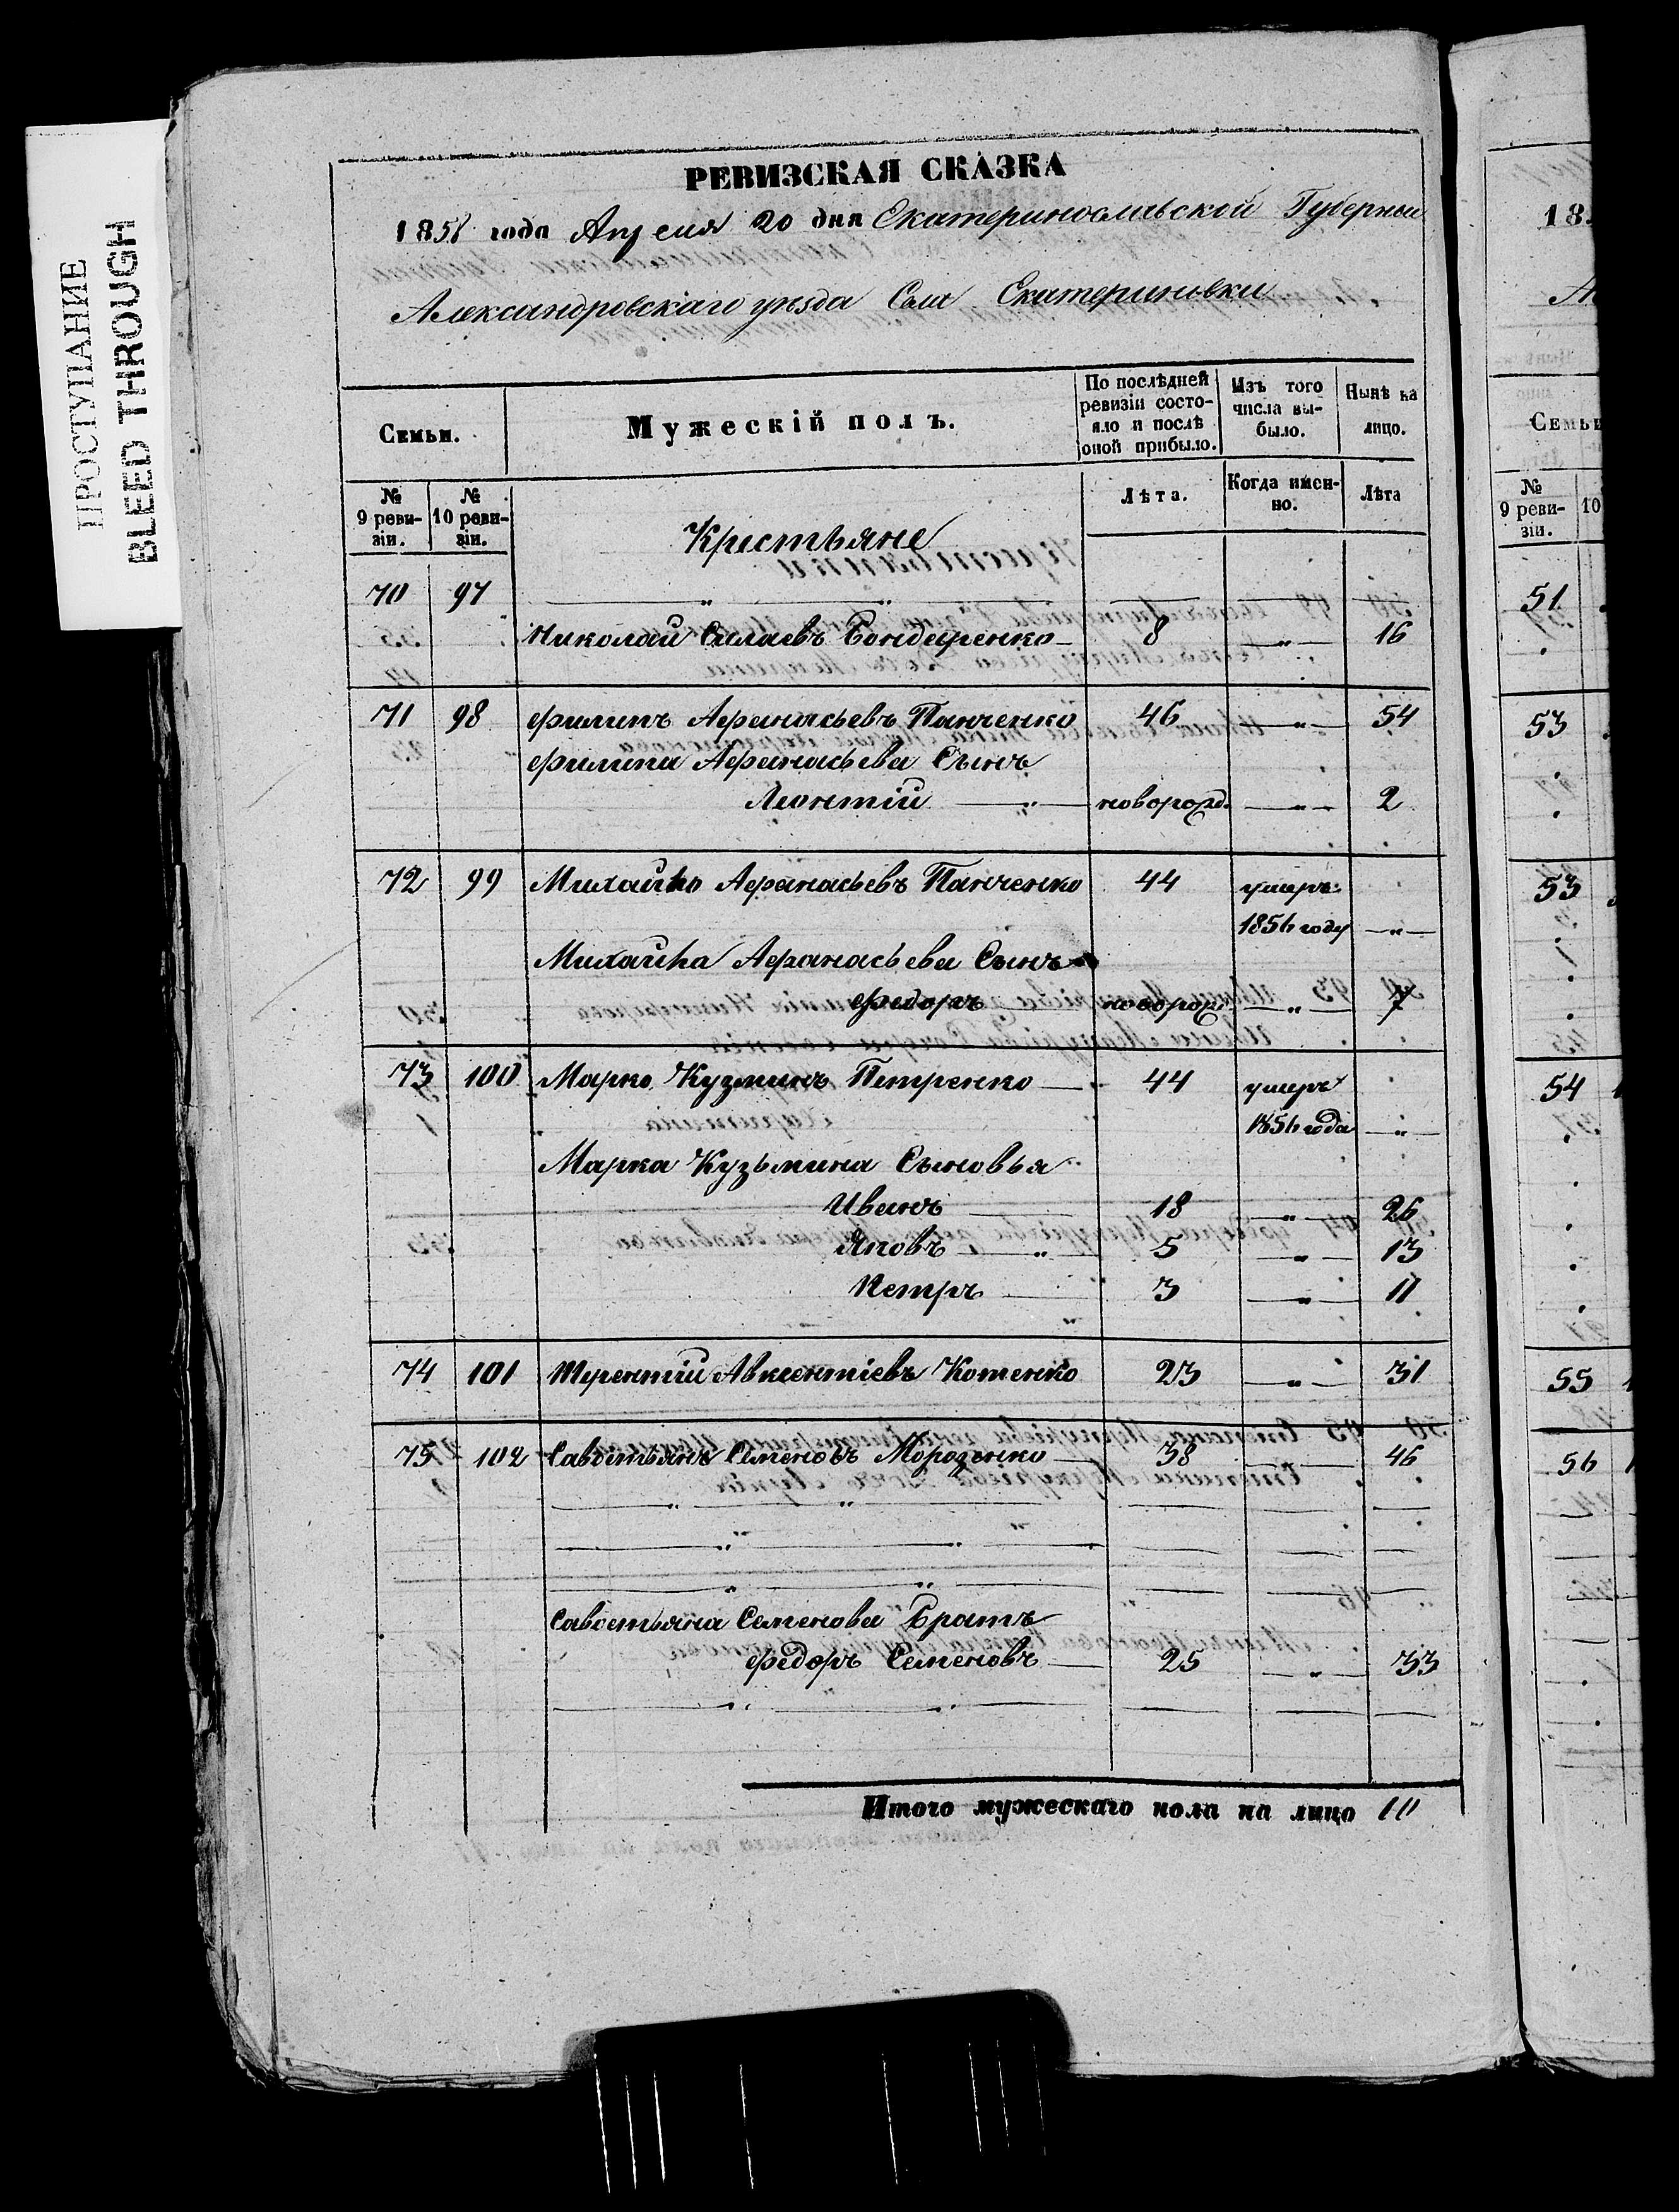 ПРОСТУПАНИЕ
BLEED THROUGH
РЕВИЗСКАЯ СКАЗКА
1858 года Апреля 20 дня Екатеринославской Губернии
Александровскаго уезда Села Екатериновки
Семьи. Мужескій полъ. По послѣдней ревизіи состояло и послѣ оной прибыло. Изъ того числа выбыло. Нынѣ на лицо.
№ 9 ревизіи. № 10 ревизіи. Лѣта. Когда именно. Лѣта
Крестьяне
70 97
Николай Силаевъ Бондаренко 8 " 16
71 98 Филипъ Афанасьевъ Панченко 46 " 54
Филипа Афанасьева Сынъ
Леонтій " новорожд. " 2
72 99 Михайло Афанасьевъ Панченко 44 умеръ
1856 году "
Михайла Афанасьева Сынъ
Федоръ новорожд " 7
73 100 Марко Кузминъ Петренко 44 умеръ
1856 года "
Марка Кузьмина Сыновья
Иванъ 18 " 26
Яковъ " 5 " 13
Петръ 3 " 11
74 101 Терентій Авксентіевъ Котенко 23 " 31
75 102 Савостьянъ Семеновъ Морозенко 38 46
" "
" "
" "
Савостьяна Семенова Братъ
Федоръ Семеновъ 25 " 33
" "
Итого мужескаго пола на лицо 10
18
Семьи
№ 9 ревизіи. 10
51
53
53
54
55
56